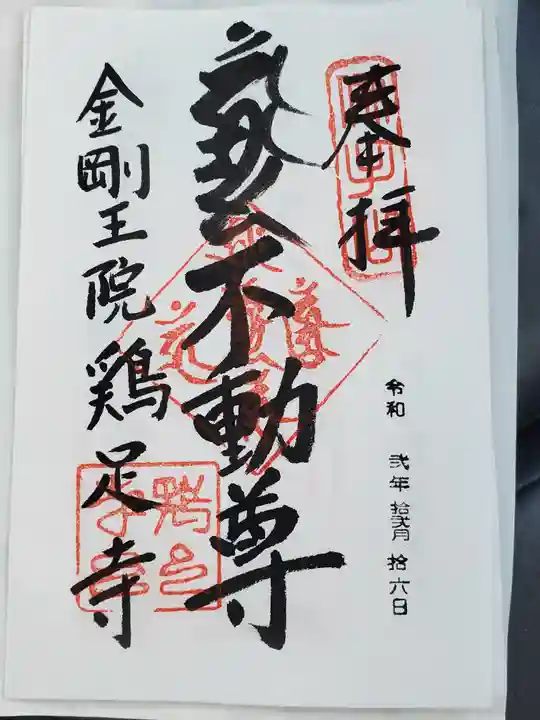 奉拝
不動尊
金剛王院鶏足寺
令和 弐年 拾弐月 拾六日